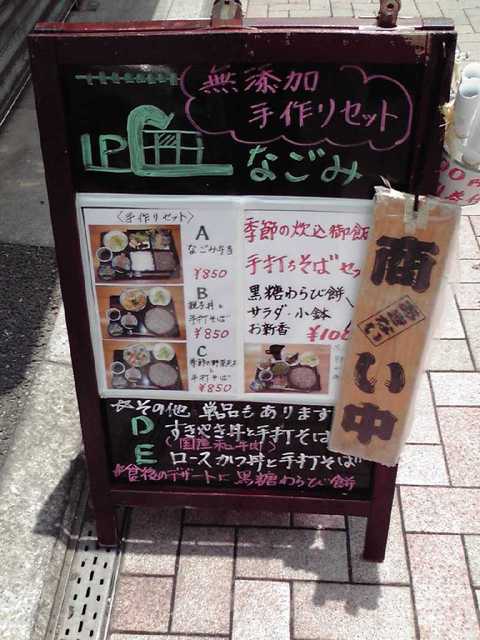 無添加
手作りセット
なごみ
〈手作りセット〉
A
なごみ弁当
¥850
B
親子丼と
手打そば
¥850
C
季節の野菜天と
手打そば
¥850
季節の炊込御飯
手打ちそばセッ
黒糖わらび餅
サラダ・小鉢
お新香
商い中
その他 単品もあります
D
すきやき丼と手打そば
(国産和牛肉)
E
ロースかつ丼と手打そば
食後のデザートに黒糖わらび餅